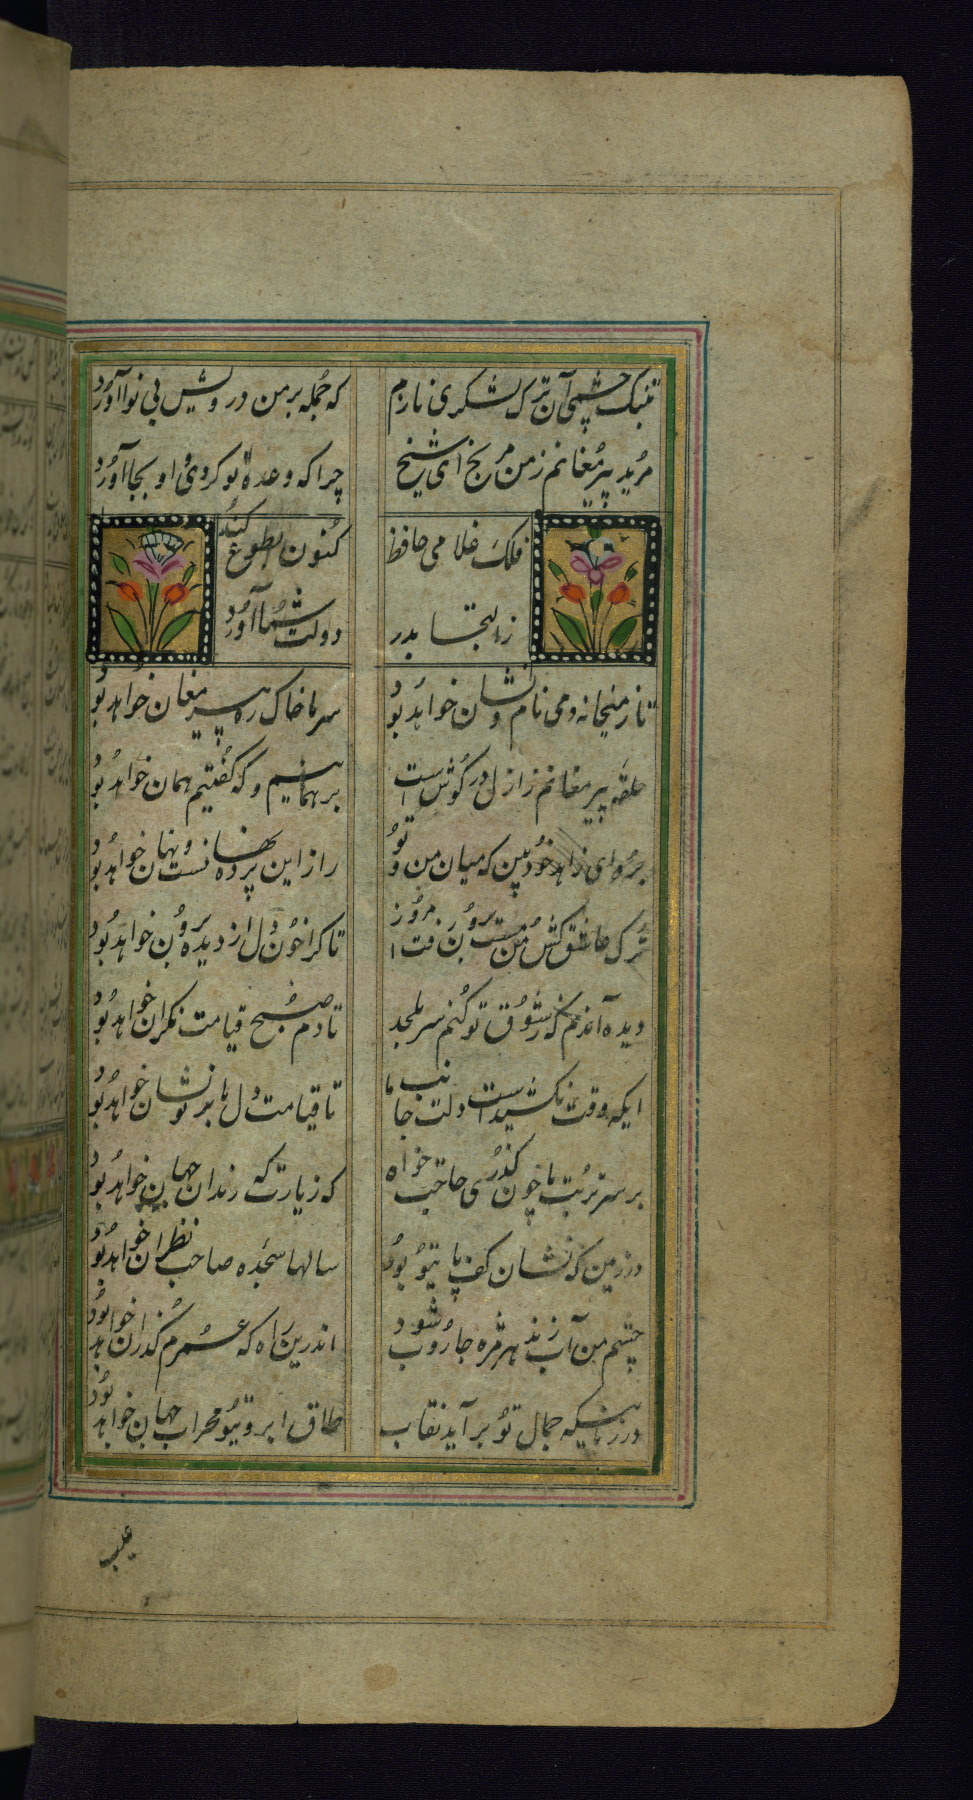 تنبک چشمی آن ترک لشکری نازم
که حمله بر من درویش بی نوا آورد
مرید پیر مغانم ز من مرنج ای شیخ
چرا که وعده تو کردی و او بجا آورد
فلک غلامی حافظ
کنون بطوع کند
ز التجا بدر
دولت شما آورد
تا ز میخانه و می نام و نشان خواهد بود
سر ما خاک ره پیر مغان خواهد بود
حلقه پیر مغانم ز ازل در گوش است
بر همانیم و که گفتیم همان خواهد بود
برو ای زاهد خودبین که میان من و تو
راز این پرده نهانست و نهان خواهد بود
ترک عاشق کش من مست برون رفت امروز
تا کرا خون دل از دیده برون خواهد بود
دیده آندم که ز شوق تو کنم سر بلحد
تا دم صبح قیامت نکران خواهد بود
ایکه وقت نکشیدست دلت جانب ما
تا قیامت دل ما بر تو نشان خواهد بود
بر سر تربت ما چون کذری حاجت خواه
که زیارت که رندان جهان خواهد بود
در زمین که نشان کف پا یتو بود
سالها سجده صاحب نظران خواهد بود
چشم من آب زند هر مژه جاروب شود
اندرین راه که عمرم کذران خواهد بود
در زمانیکه جمال تو بر آید نقاب
طاق ابرو تیو محراب جهان خواهد بود